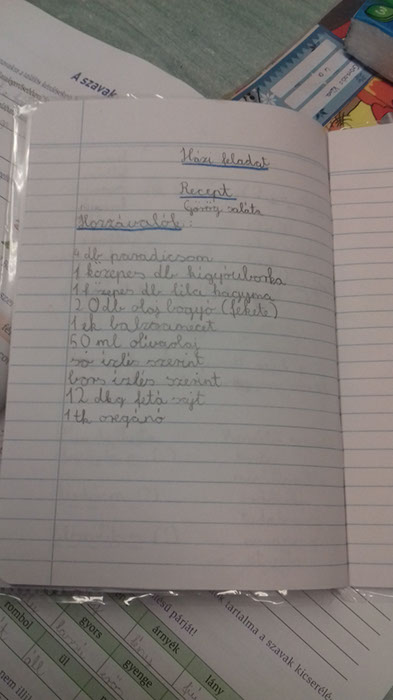 A szavak
Házi feladat
Recept
Görög saláta
Hozzávalók:
4 db paradicsom
1 közepes db kígyóuborka
1 közepes db lila hagyma
20db olaj bogyó (fekete)
1 ek balzsamecet
50 ml olívaolaj
só ízlés szerint
bors ízlés szerint
12 dkg feta sajt
1 tk oregánó
ésű párját!
k tartalma a szavak kicserélé
rombol
gyors
árnyék
lány
ül
gyenge